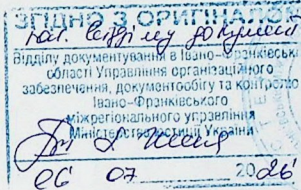 ЗГІДНО З ОРИГІНАЛОМ
нач. відділу документ
Відділу документування в Івано-Франківські
області Управління організаційного
забезпечення, документообігу та контролю
Івано-Франківського
міжрегіонального управління
Міністерства юстиції України
06 07 2026